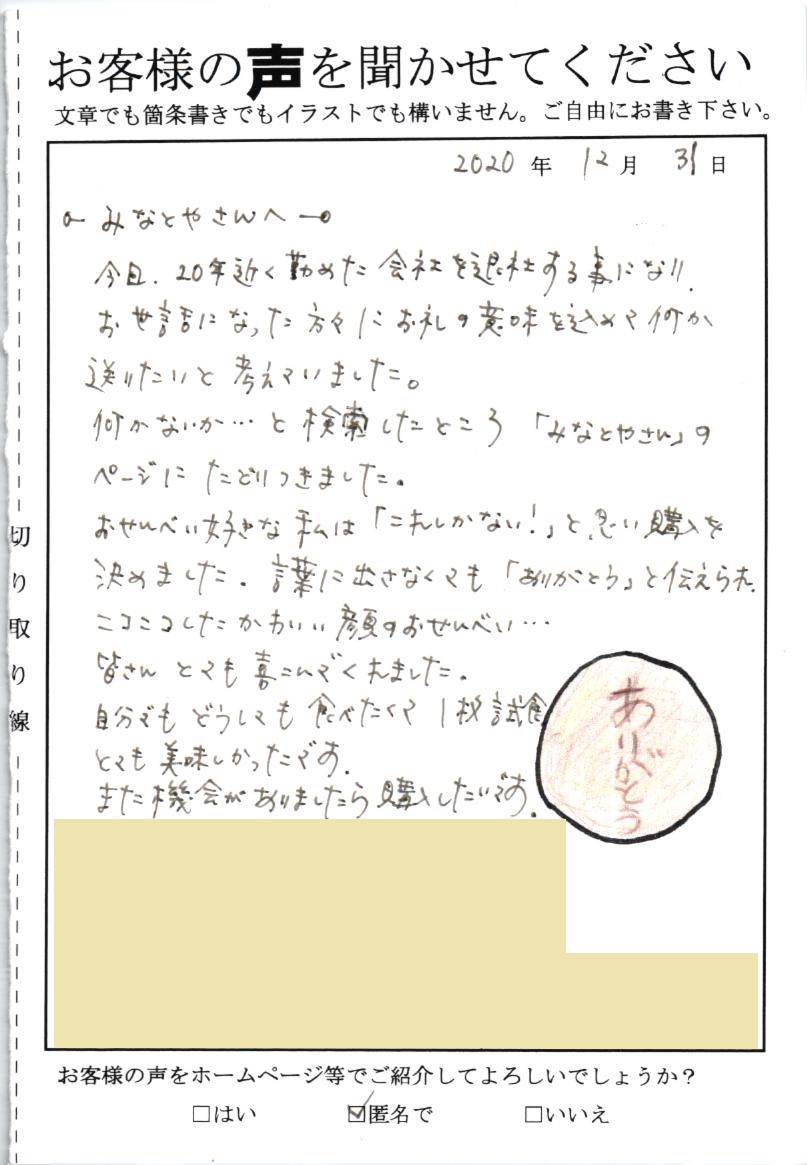 お客様の声を聞かせてください
文章でも箇条書きでもイラストでも構いません。ご自由にお書き下さい。
2020 年 12 月 31 日
みなとやさんへ
今回、20年近く勤めた会社を退社する事になり、
お世話になった方々にお礼の意味を込めて何か
送りたいと考えていました。
何かないか…と検索したところ「みなとやさん」の
ページにたどりつきました。
おせんべい好きな私は「これしかない!」と思い購入を
決めました。言葉に出さなくても「ありがとう」と伝えられ、
ニコニコしたかわいい顔のおせんべい…
皆さんとても喜こんでくれました。
自分でもどうしても食べたくて1枚試食
とても美味しかったです。
また機会がありましたら購入したいです。
ありがとう
切り取り線
お客様の声をホームページ等でご紹介してよろしいでしょうか?
□はい ☑匿名で □いいえ